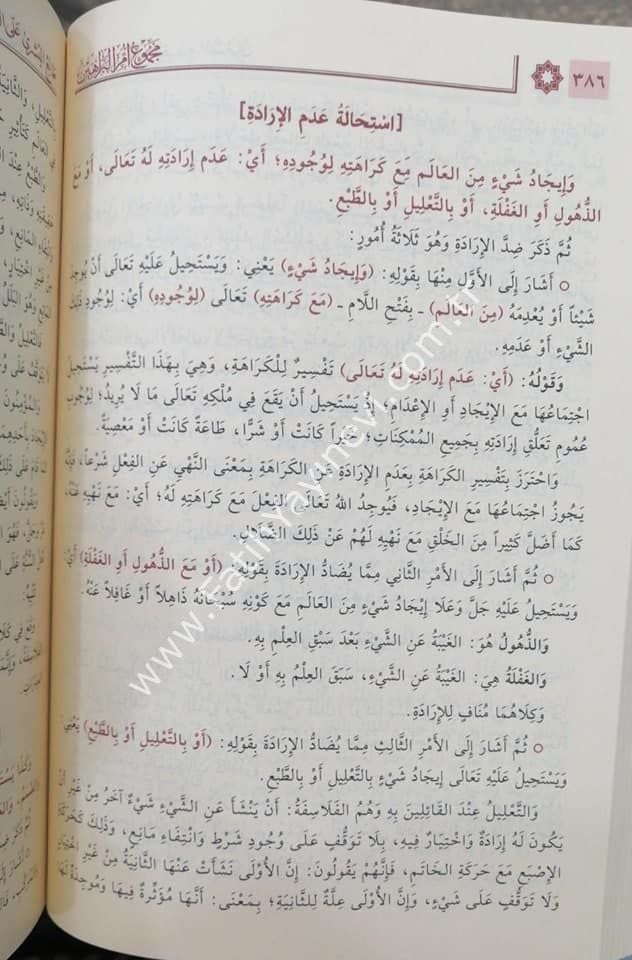 ٣٨٦
مجموع أم البراهين
[اسْتِحَالَةُ عَدَمِ الإِرَادَةِ]
وَإِيجَادُ شَيْءٍ مِنَ العَالَمِ مَعَ كَرَاهَتِهِ لِوُجُودِهِ؛ أَيْ: عَدَمِ إِرَادَتِهِ لَهُ تَعَالَى، أَوْ مَعَ
الذُّهُولِ أَوِ الغَفْلَةِ، أَوْ بِالتَّعْلِيلِ أَوْ بِالطَّبْعِ.
ثُمَّ ذَكَرَ ضِدَّ الإِرَادَةِ وَهُوَ ثَلَاثَةُ أُمُورٍ:
○ أَشَارَ إِلَى الأَوَّلِ مِنْهَا بِقَوْلِهِ: (وَإِيجَادُ شَيْءٍ) يَعْنِي: وَيَسْتَحِيلُ عَلَيْهِ تَعَالَى أَنْ يُوجِدَ
شَيْئاً أَوْ يُعْدِمَهُ (مِنَ العَالَمِ) ـ بِفَتْحِ اللَّامِ ـ (مَعَ كَرَاهَتِهِ) تَعَالَى (لِوُجُودِهِ) أَيْ: لِوُجُودِ ذَلِكَ
الشَّيْءِ أَوْ عَدَمِهِ.
وَقَوْلُهُ: (أَيْ: عَدَمِ إِرَادَتِهِ لَهُ تَعَالَى) تَفْسِيرٌ لِلْكَرَاهَةِ، وَهِيَ بِهَذَا التَّفْسِيرِ يَسْتَحِيلُ
اجْتِمَاعُهَا مَعَ الإِيجَادِ أَوِ الإِعْدَامِ؛ إِذْ يَسْتَحِيلُ أَنْ يَقَعَ فِي مُلْكِهِ تَعَالَى مَا لَا يُرِيدُ؛ لِوُجُوبِ
عُمُومِ تَعَلُّقِ إِرَادَتِهِ بِجَمِيعِ المُمْكِنَاتِ؛ خَيْراً كَانَتْ أَوْ شَرًّا، طَاعَةً كَانَتْ أَوْ مَعْصِيَةً.
وَاحْتَرَزَ بِتَفْسِيرِ الكَرَاهَةِ بِعَدَمِ الإِرَادَةِ عَنِ الكَرَاهَةِ بِمَعْنَى النَّهْيِ عَنِ الفِعْلِ شَرْعاً، فَإِنَّهُ
يَجُوزُ اجْتِمَاعُهَا مَعَ الإِيجَادِ، فَيُوجِدُ اللهُ تَعَالَى الفِعْلَ مَعَ كَرَاهَتِهِ لَهُ؛ أَيْ: مَعَ نَهْيِهِ عَنْهُ،
كَمَا أَضَلَّ كَثِيراً مِنَ الخَلْقِ مَعَ نَهْيِهِ لَهُمْ عَنْ ذَلِكَ الضَّلَالِ.
○ ثُمَّ أَشَارَ إِلَى الأَمْرِ الثَّانِي مِمَّا يُضَادُّ الإِرَادَةَ بِقَوْلِهِ: (أَوْ مَعَ الذُّهُولِ أَوِ الغَفْلَةِ) أَيْ:
وَيَسْتَحِيلُ عَلَيْهِ جَلَّ وَعَلَا إِيجَادُ شَيْءٍ مِنَ العَالَمِ مَعَ كَوْنِهِ سُبْحَانَهُ ذَاهِلاً أَوْ غَافِلاً عَنْهُ.
وَالذُّهُولُ هُوَ: الغَيْبَةُ عَنِ الشَّيْءِ بَعْدَ سَبْقِ العِلْمِ بِهِ.
وَالغَفْلَةُ هِيَ: الغَيْبَةُ عَنِ الشَّيْءِ، سَبَقَ العِلْمُ بِهِ أَوْ لَا.
وَكِلَاهُمَا مُنَافٍ لِلإِرَادَةِ.
○ ثُمَّ أَشَارَ إِلَى الأَمْرِ الثَّالِثِ مِمَّا يُضَادُّ الإِرَادَةَ بِقَوْلِهِ: (أَوْ بِالتَّعْلِيلِ أَوْ بِالطَّبْعِ) يَعْنِي:
وَيَسْتَحِيلُ عَلَيْهِ تَعَالَى إِيجَادُ شَيْءٍ بِالتَّعْلِيلِ أَوْ بِالطَّبْعِ.
وَالتَّعْلِيلُ عِنْدَ القَائِلِينَ بِهِ وَهُمُ الفَلَاسِفَةُ: أَنْ يَنْشَأَ عَنِ الشَّيْءِ شَيْءٌ آخَرُ مِنْ غَيْرِ أَنْ
يَكُونَ لَهُ إِرَادَةٌ وَاخْتِيَارٌ فِيهِ، بِلَا تَوَقُّفٍ عَلَى وُجُودِ شَرْطٍ وَانْتِفَاءِ مَانِعٍ، وَذَلِكَ كَحَرَكَةِ
الإِصْبَعِ مَعَ حَرَكَةِ الخَاتَمِ، فَإِنَّهُمْ يَقُولُونَ: إِنَّ الأُولَى نَشَأَتْ عَنْهَا الثَّانِيَةُ مِنْ غَيْرِ اخْتِيَارٍ
وَلَا تَوَقُّفٍ عَلَى شَيْءٍ، وَإِنَّ الأُولَى عِلَّةٌ لِلثَّانِيَةِ؛ بِمَعْنَى: أَنَّهَا مُؤَثِّرَةٌ فِيهَا وَمُوجِدَةٌ لَهَا
www.fatihyayinevi.com.tr